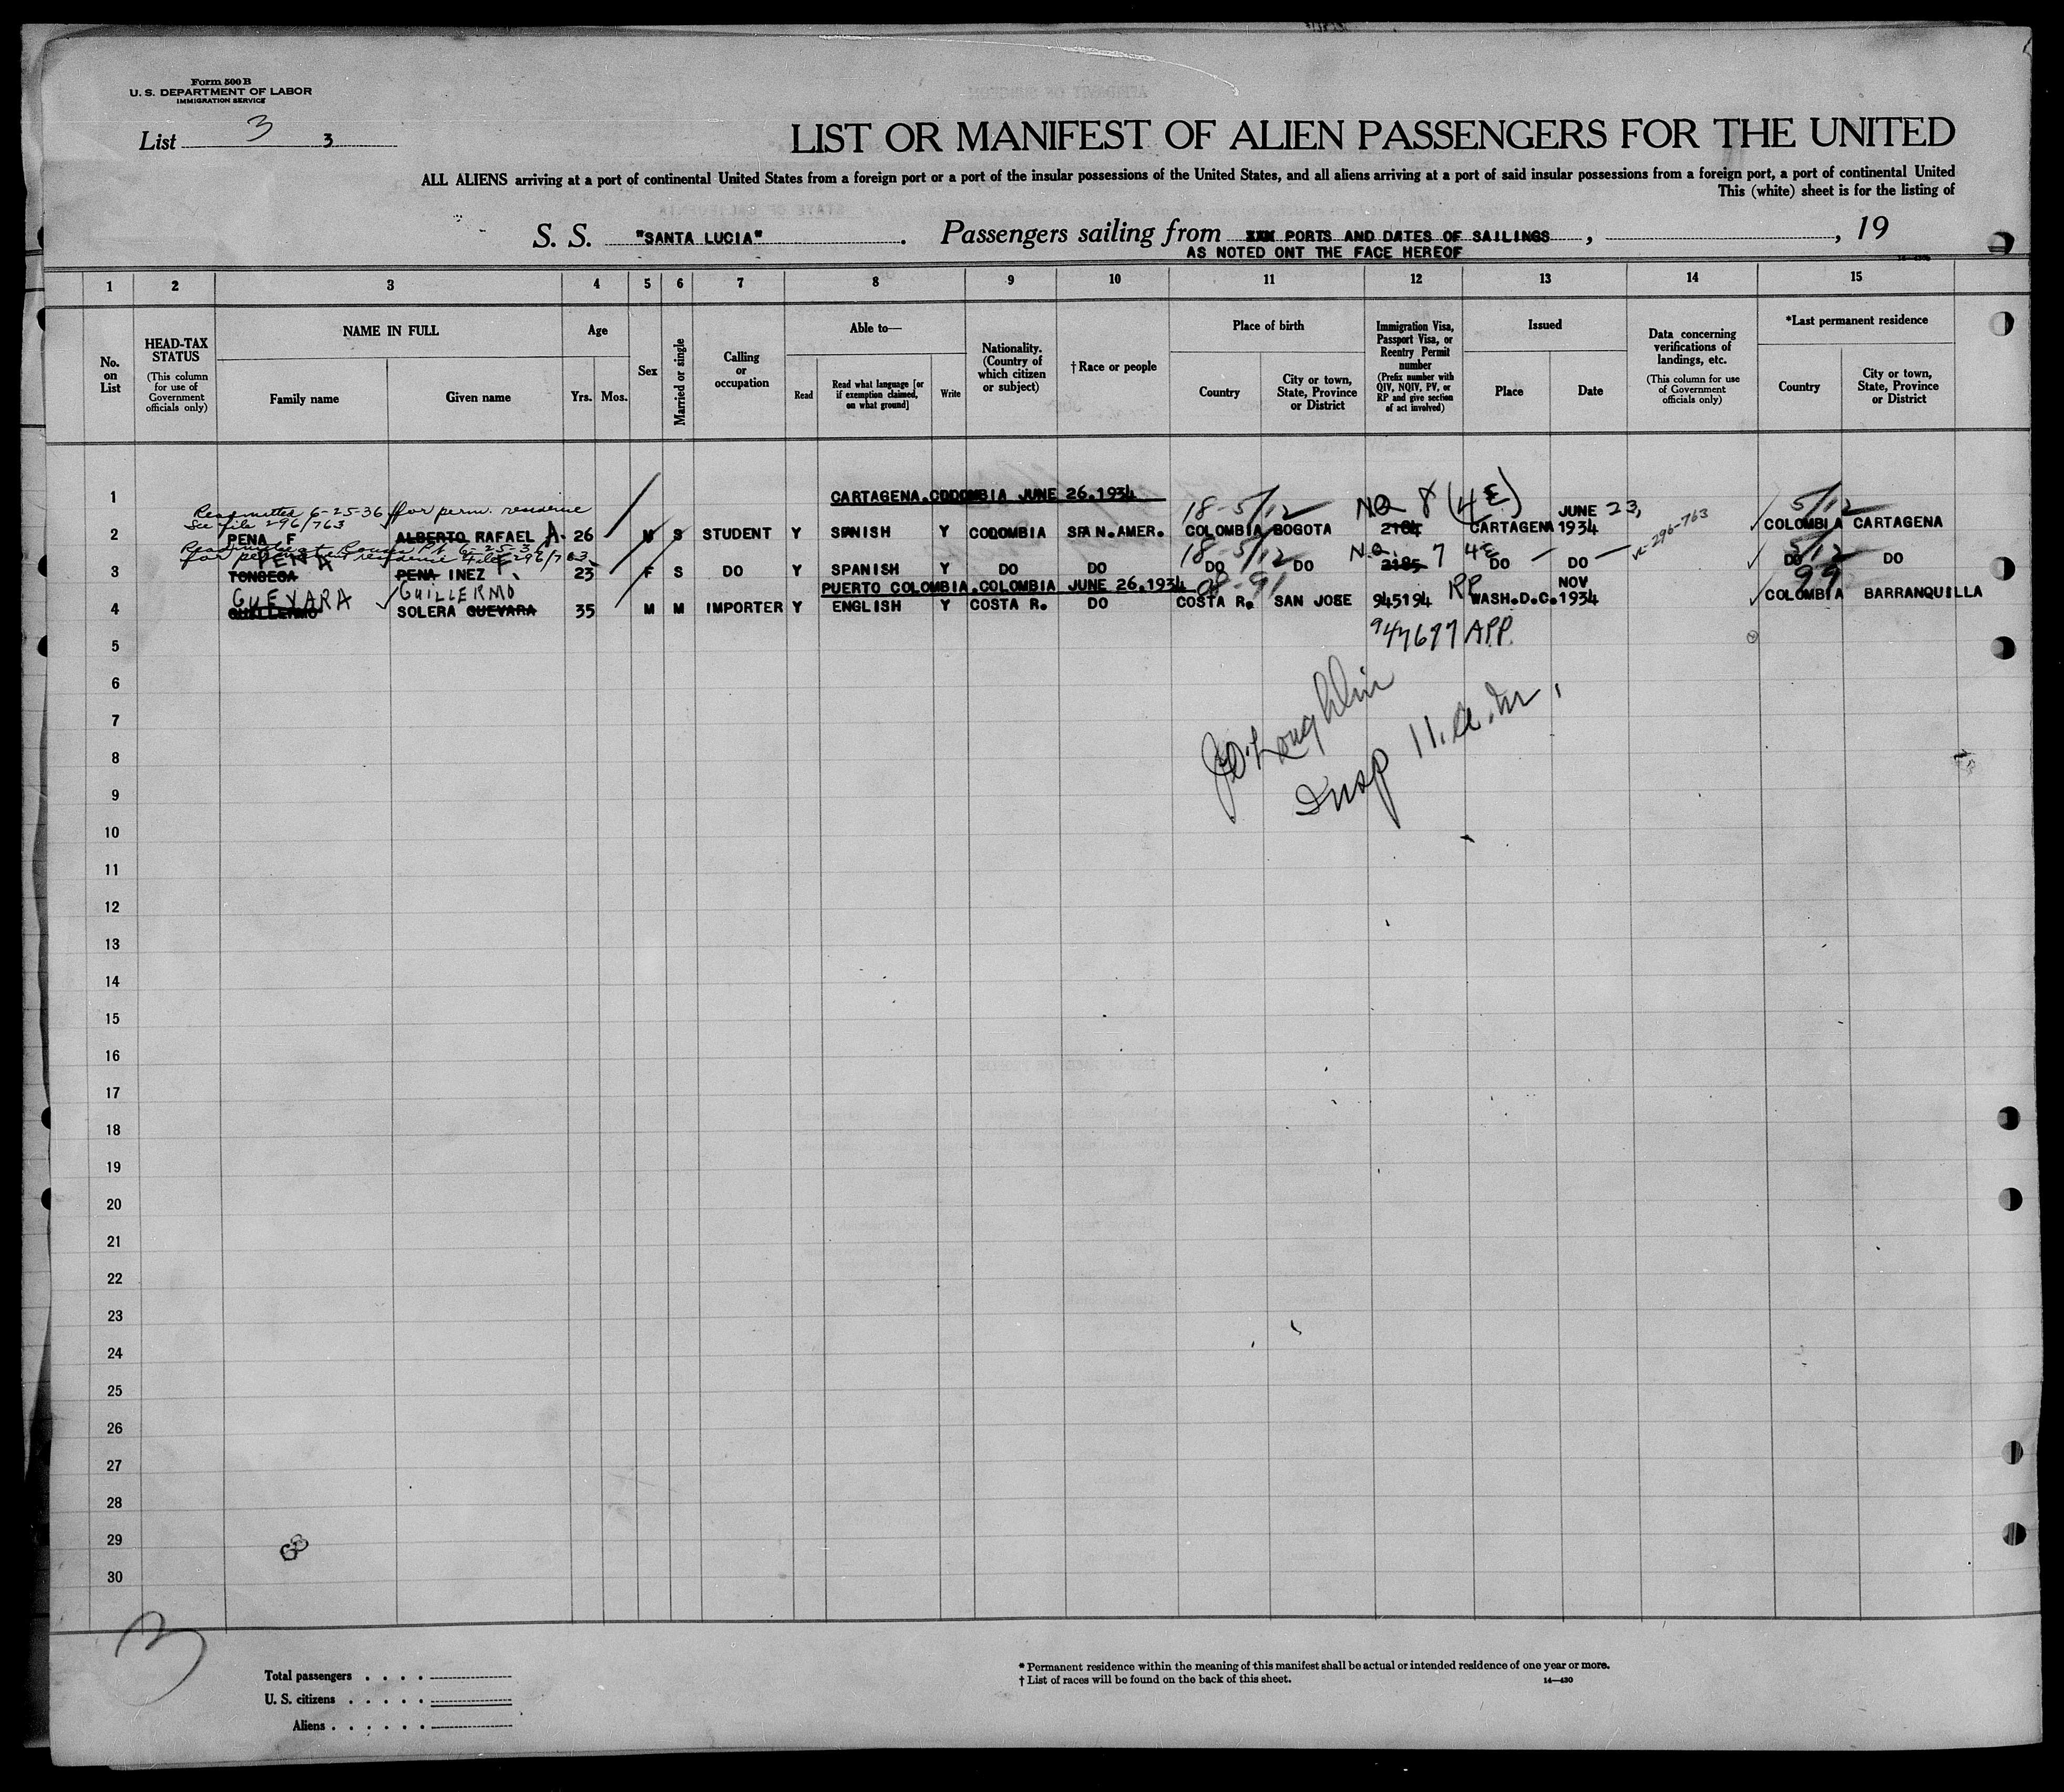 Form 500 B
U. S. DEPARTMENT OF LABOR
IMMIGRATION SERVICE
List 3 3
LIST OR MANIFEST OF ALIEN PASSENGERS FOR THE UNITED
ALL ALIENS arriving at a port of continental United States from a foreign port or a port of the insular possessions of the United States, and all aliens arriving at a port of said insular possessions from a foreign port, a port of continental United
This (white) sheet is for the listing of
S. S. "SANTA LUCIA" . Passengers sailing from XXX PORTS AND DATES OF SAILINGS , , 19
AS NOTED ONT THE FACE HEREOF
1 2 3 4 5 6 7 8 9 10 11 12 13 14 15
No. on List
HEAD-TAX STATUS
(This column for use of Government officials only)
NAME IN FULL
Family name
Given name
Age
Yrs. Mos.
Sex
Married or single
Calling or occupation
Able to—
Read
Read what language [or if exemption claimed, on what ground]
Write
Nationality. (Country of which citizen or subject)
† Race or people
Place of birth
Country
City or town, State, Province or District
Immigration Visa, Passport Visa, or Reentry Permit number
(Prefix number with QIV, NQIV, PV, or RP and give section of act involved)
Issued
Place
Date
Data concerning verifications of landings, etc.
(This column for use of Government officials only)
*Last permanent residence
Country
City or town, State, Province or District
1 CARTAGENA.COLOMBIA JUNE 26.1934
Readmitted 6-25-36 for perm. residence
See file 296/763
18-5/12 NQ 8 (4E) JUNE 23, 5/12
2 PENA F ALBERTO RAFAEL A. 26 M S STUDENT Y SPANISH Y COLOMBIA SPAN.AMER. COLOMBIA BOGOTA 2184 CARTAGENA 1934 COLOMBIA CARTAGENA
6-25-36
for permanent residence File 296/763
PENA F 18-5/12 N.Q. 7 4E vc-296-763 5/12
3 TONSECA PENA INEZ 23 F S DO Y SPANISH Y DO DO DO DO 2185 DO — DO — DO DO
PUERTO COLOMBIA.COLOMBIA JUNE 26.1934
GUEVARA GUILLERMO 08-91 RP NOV 99
4 GUILLERMO SOLERA GUEVARA 35 M M IMPORTER Y ENGLISH Y COSTA R. DO COSTA R. SAN JOSE 945194 WASH.D.C. 1934 COLOMBIA BARRANQUILLA
5 947677 APP.
6
7
8
J O'Loughlin
Insp 11.a.m.
9
10
11
12
13
14
15
16
17
18
19
20
21
22
23
24
25
26
27
28
29
30
3
Total passengers . . . .
U. S. citizens . . . . .
Aliens . . . . . .
* Permanent residence within the meaning of this manifest shall be actual or intended residence of one year or more.
† List of races will be found on the back of this sheet.
14—430